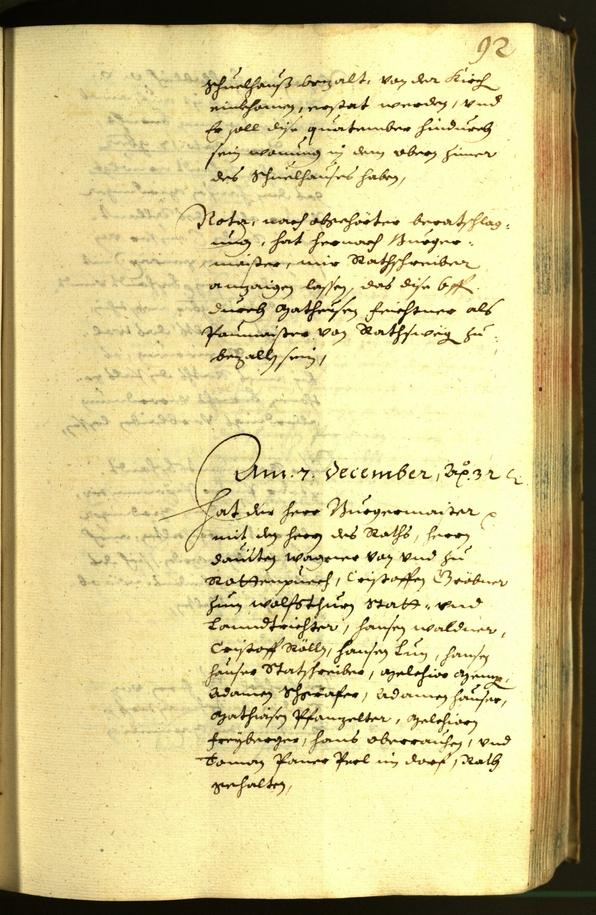 92
Schuelhauß bezalt, von der Kirch
einkhomen, erstat werden, vnd
Er soll dise quatember hindurch
sein wonung in dem obern zimer
des Schuelhauses haben,
Nota, nach abgehörter beratschlag-
ung, hat hernach Burger-
maister, mir Rathschreiber
anzaigen lassen, das dise
durch Matheusen Feichtner als
Paumaister von Rathswög zu
bezalln sein,
Am. 7. December, 32
Hat der Herr Burgermaister
mit den herrn des Raths, herrn
Dauiten Wagner von vnd zu
Rottenpuech, Cristoffen Gröbner
zum Wolfsthurn Statt- vnd
Lanndtrichter, Hansen Waldner,
Cristoff Röll, Hansen Lun, Hansen
Hauser Statschreiber, Melchior
Adamen Schrafer, Adamen Hauser,
Mathiasen Pfanzelter, Melchiorn
Freyberger, Hans Oberrauchen, vnd
Toman im Dorf, Rath
gehalten,